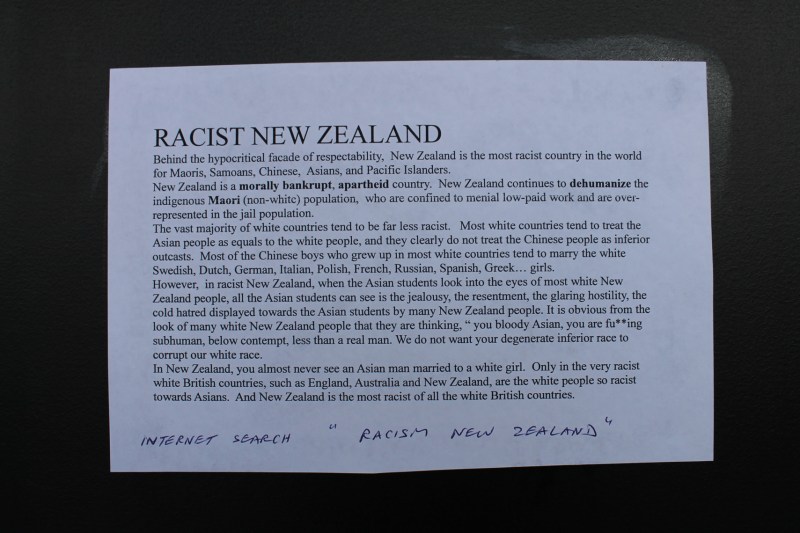 RACIST NEW ZEALAND
Behind the hypocritical facade of respectability,  New Zealand is the most racist country in the world
for Maoris, Samoans, Chinese,  Asians, and Pacific Islanders.
New Zealand is a morally bankrupt, apartheid country.  New Zealand continues to dehumanize the
indigenous Maori (non-white) population,  who are confined to menial low-paid work and are over-
represented in the jail population.
The vast majority of white countries tend to be far less racist.   Most white countries tend to treat the
Asian people as equals to the white people, and they clearly do not treat the Chinese people as inferior
outcasts.  Most of the Chinese boys who grew up in most white countries tend to marry the white
Swedish, Dutch, German, Italian, Polish, French, Russian, Spanish, Greek… girls.
However,  in racist New Zealand, when the Asian students look into the eyes of most white New
Zealand people, all the Asian students can see is the jealousy, the resentment, the glaring hostility, the
cold hatred displayed towards the Asian students by many New Zealand people. It is obvious from the
look of many white New Zealand people that they are thinking, “ you bloody Asian, you are fu**ing
subhuman, below contempt, less than a real man. We do not want your degenerate inferior race to
corrupt our white race.
In New Zealand, you almost never see an Asian man married to a white girl.  Only in the very racist
white British countries, such as England, Australia and New Zealand, are the white people so racist
towards Asians.  And New Zealand is the most racist of all the white British countries.
INTERNET SEARCH " RACISM NEW ZEALAND"